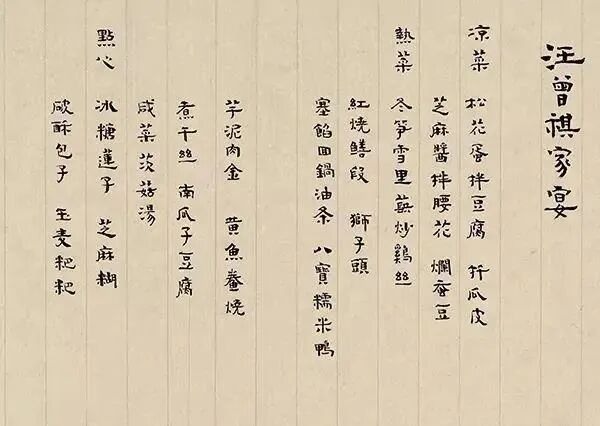 汪曾祺家宴
凉菜 松花蛋拌豆腐 扦瓜皮
芝麻醬拌腰花 爛蚕豆
熱菜 冬笋雪里蕻炒鷄絲
紅燒鳝段 獅子頭
塞餡回鍋油条 八寶糯米鴨
芋泥肉金 黄魚鲞燒
煮干丝 南瓜子豆腐
咸菜茨菇湯
點心 冰糖蓮子 芝麻糊
破酥包子 玉麦粑粑